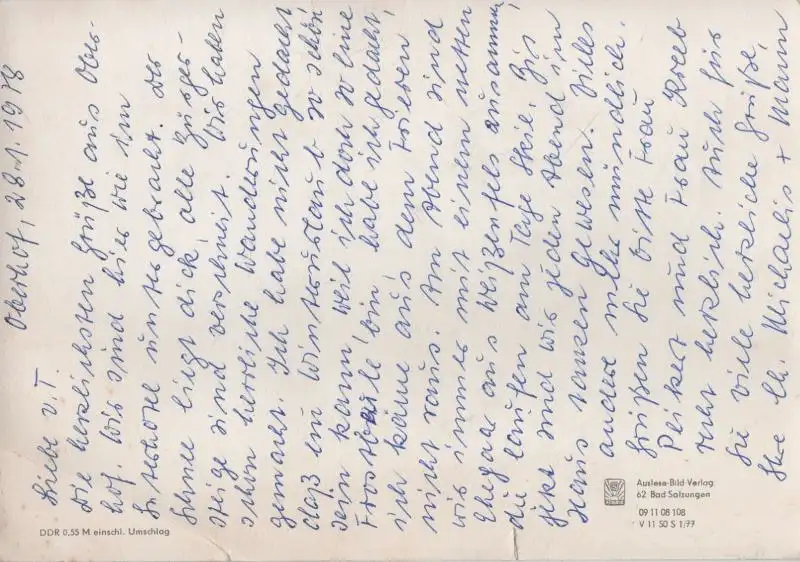 Oberhof, 28.1.1978
Liebe v. T.
die herzlichsten Grüße aus Ober-
hof. Wir sind hier wie im
Interhotel untergebracht. Der
Schnee liegt dick, alle Bürger-
steige sind verschneit. Wir haben
schon herrliche Wanderungen
gemacht. Ich habe nicht gedacht
daß ein Winterurlaub so schön
sein kann, weil ich doch so eine
Frostbeule bin, habe ich gedacht,
ich käme aus dem Frieren
nicht raus. Am Abend sind
wir immer mit einem netten
Ehepaar aus Weißenfels zusammen,
die laufen am Tage Skie. Bis
jetzt sind wir jeden Abend im
Haus tanzen gewesen. Alles
andere mehr mündlich.
Grüßen Sie bitte Frau
Peikert und Frau
recht herzlich. Auch für
Sie viele herzliche Grüße,
Ihre Ch. Michaelis + Mann
DDR 0,55 M einschl. Umschlag
Auslese-Bild-Verlag
62 Bad Salzungen
09 11 08 108
V 11 50 S 1/77